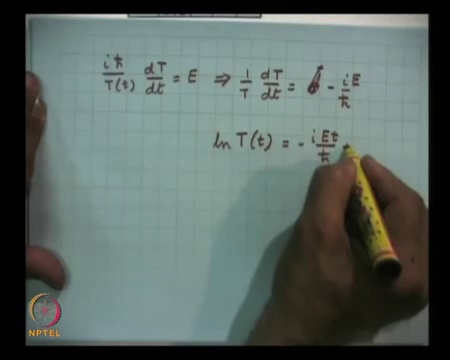 iħ/T(t) dT/dt = E ⇒ 1/T dT/dt = - iE/ħ
ln T(t) = - iEt/ħ
NPTEL